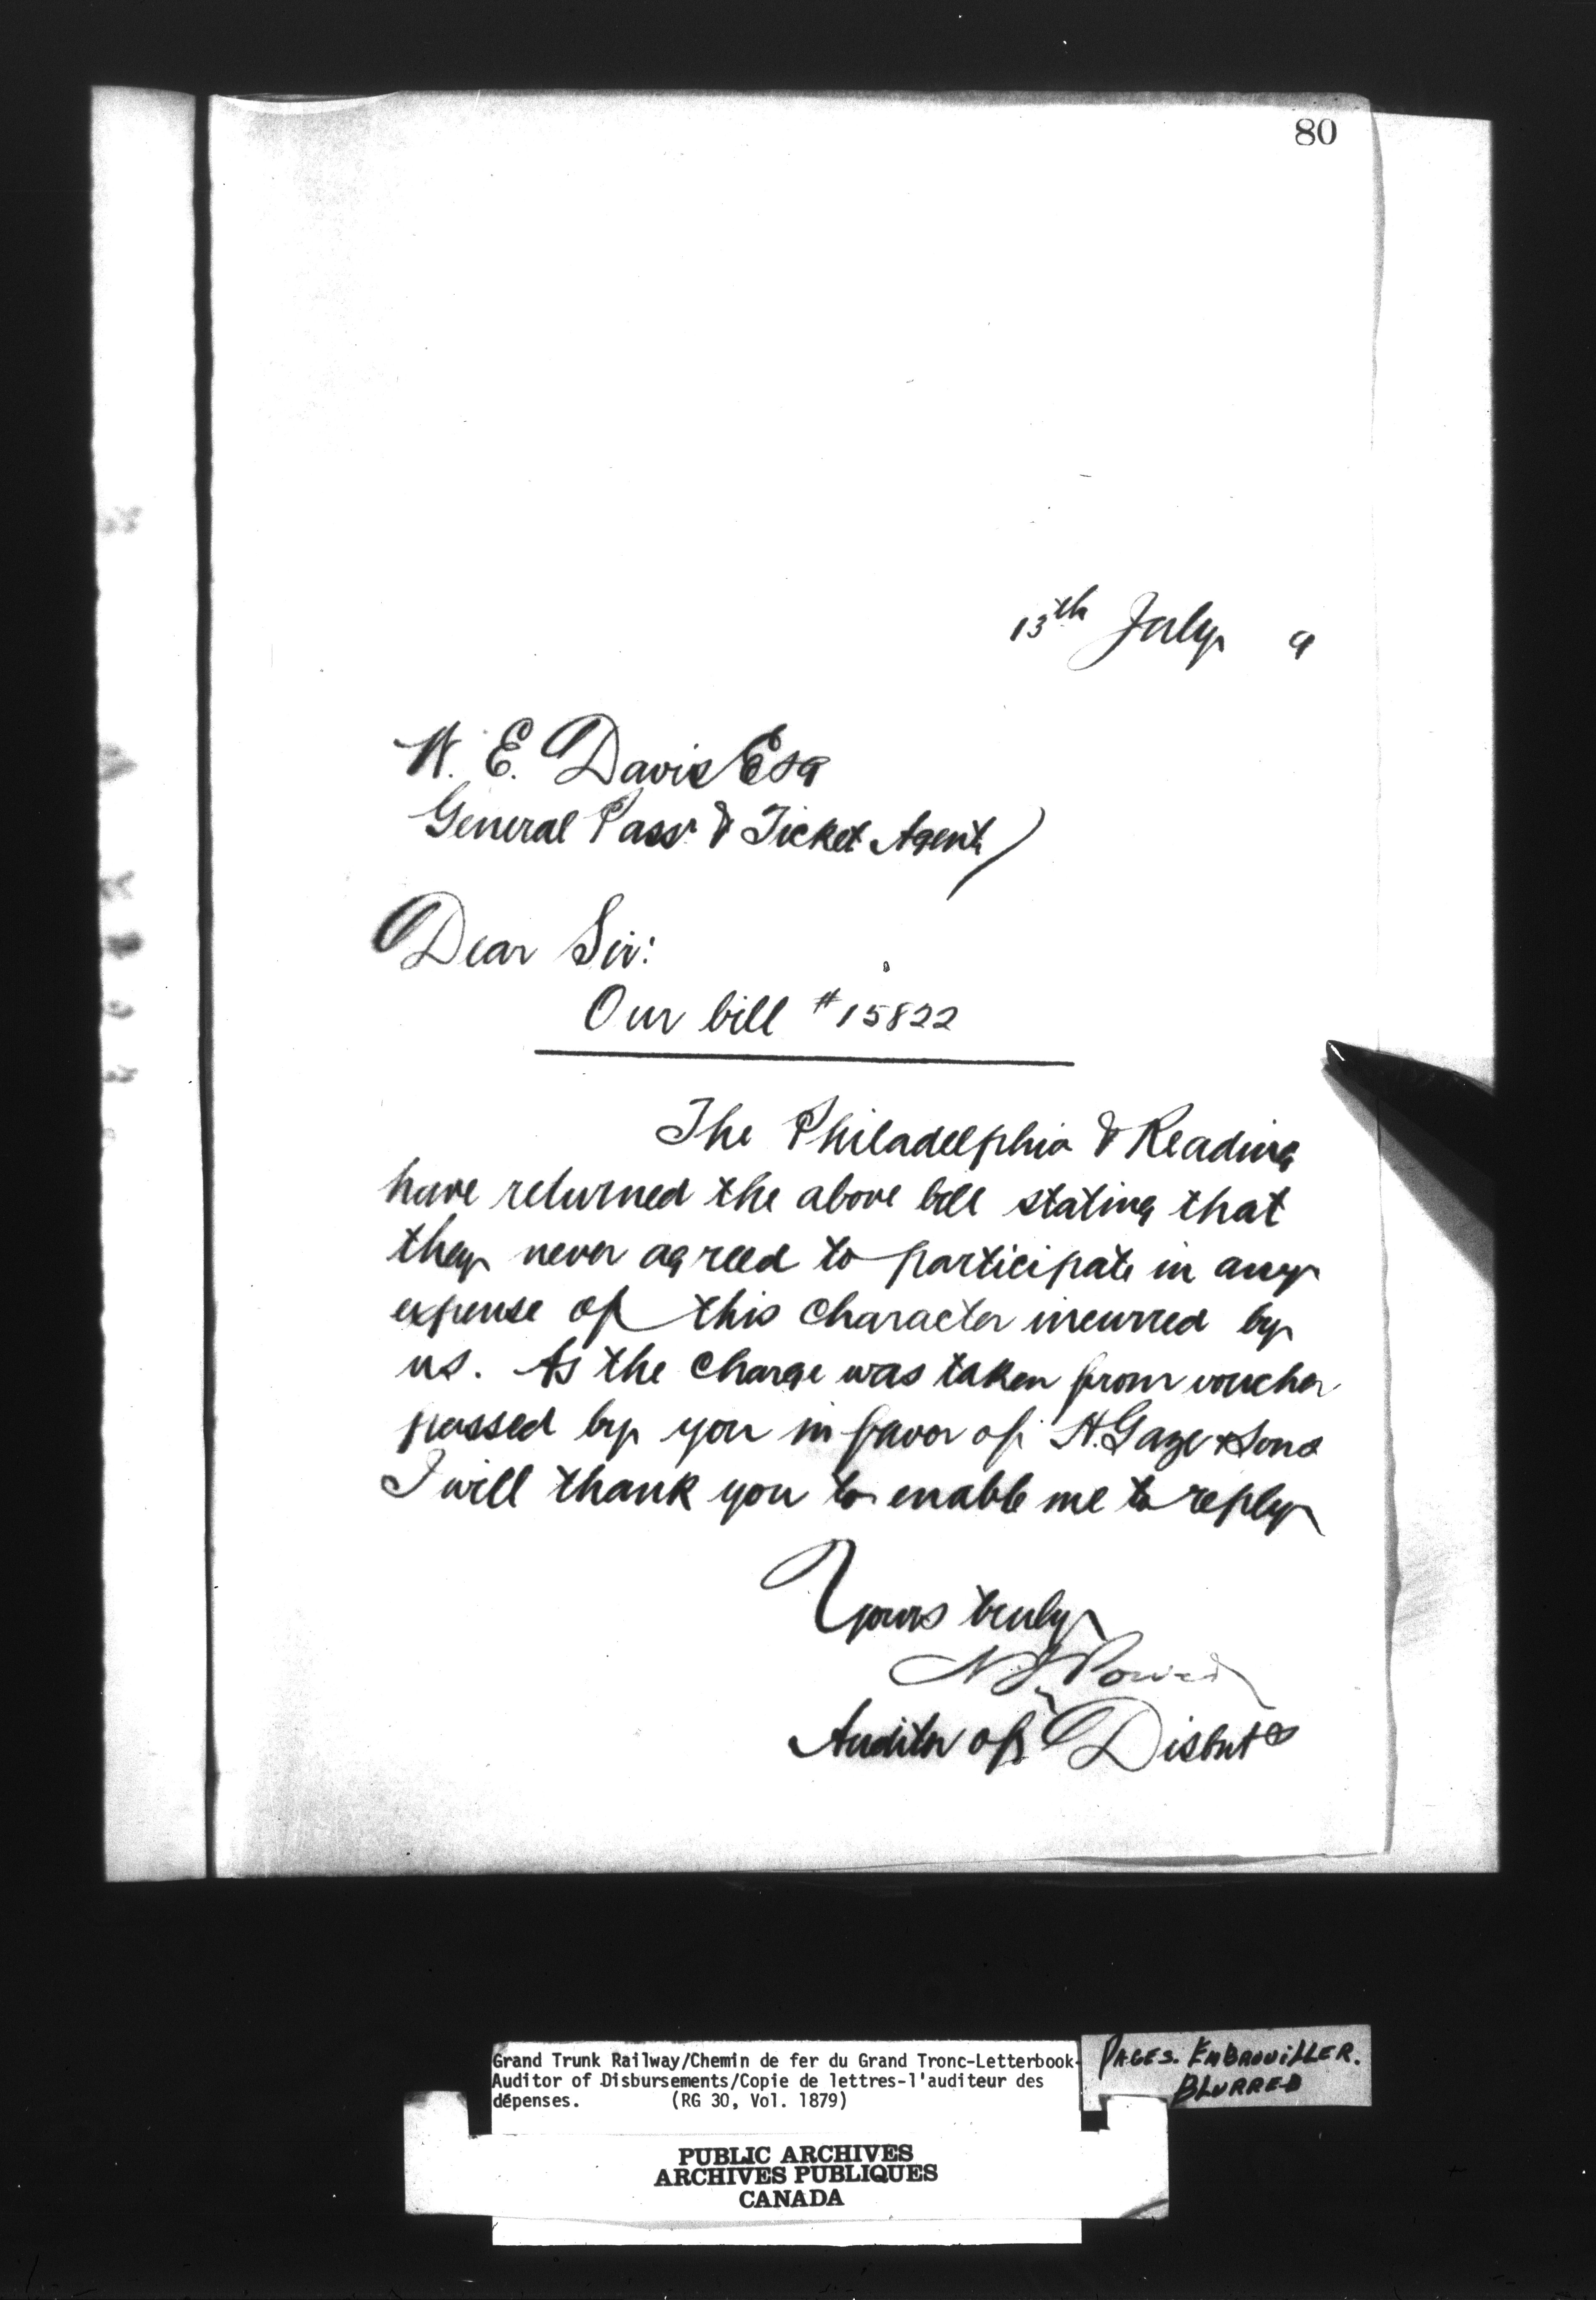 80
13th July 9
W. E. Davis Esq
General Passr & Ticket Agent,
Dear Sir:
Our bill #15822
The Philadelphia & Reading
have returned the above bill stating that
they never agreed to participate in any
expense of this character incurred by
us. As the charge was taken from voucher
passed by you in favor of H. Gaze & Sons
I will thank you to enable me to reply
Yours truly
Auditor of Disbuts
Grand Trunk Railway/Chemin de fer du Grand Tronc-Letterbook-
Auditor of Disbursements/Copie de lettres-l'auditeur des
dépenses. (RG 30, Vol. 1879)
PAGES. EMBROUILLER.
BLURRED
PUBLIC ARCHIVES
ARCHIVES PUBLIQUES
CANADA